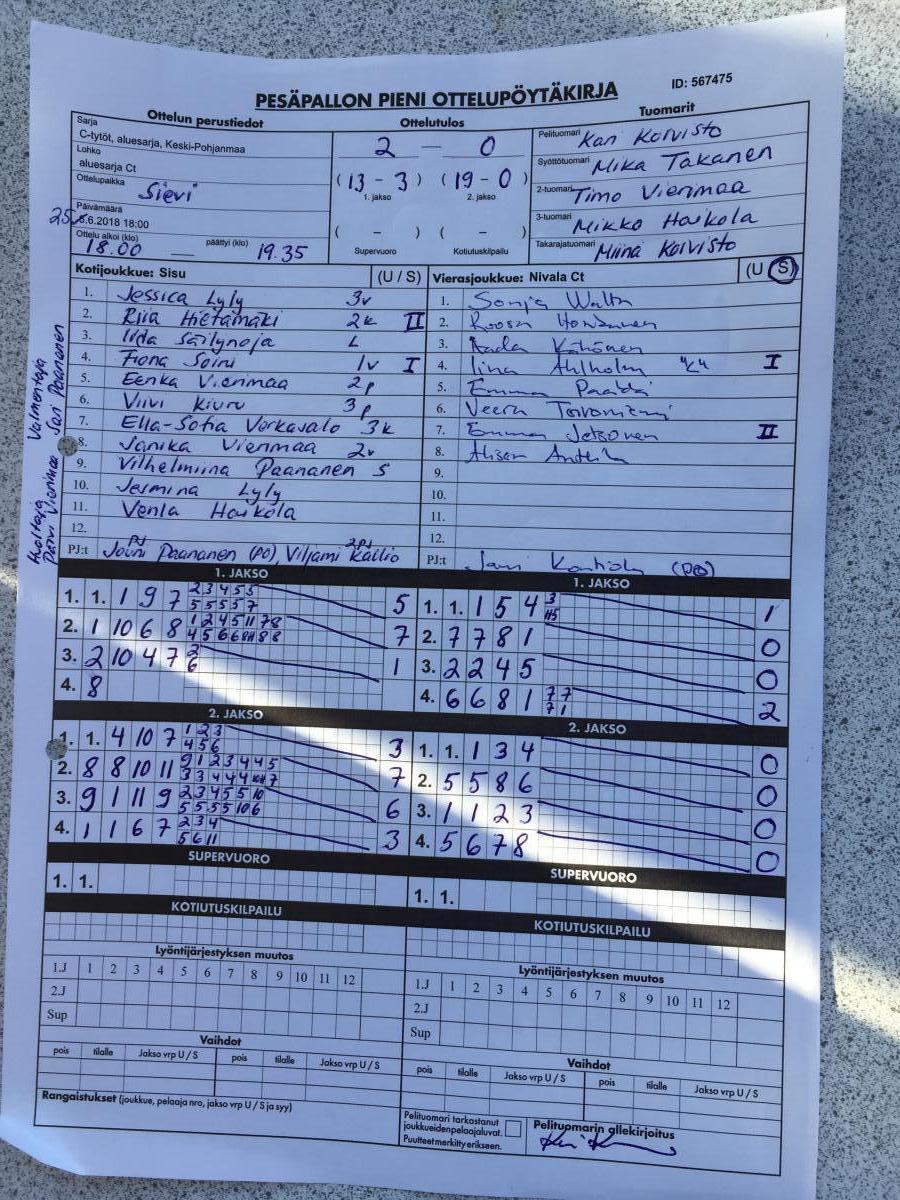 ID: 567475
PESÄPALLON PIENI OTTELUPÖYTÄKIRJA
Ottelun perustiedot
Sarja
C-tytöt, aluesarja, Keski-Pohjanmaa
Lohko
aluesarja Ct
Ottelupaikka Sievi
Päivämäärä
25.6.2018 18:00
Ottelu alkoi (klo) päättyi (klo)
18.00 — 19.35
Ottelutulos
2 — 0
(13 - 3) (19 - 0)
1. jakso 2. jakso
( - ) ( - )
Supervuoro Kotiutuskilpailu
Tuomarit
Pelituomari Kari Koivisto
Syöttötuomari Mika Takanen
2-tuomari Timo Vierimaa
3-tuomari Mikko Haikola
Takarajatuomari Miina Koivisto
Valmentaja
Jari Paananen
Huoltaja
Päivi Vierimaa
Kotijoukkue: Sisu (U / S)
1. Jessica Lyly 3v
2. Riia Hietamäki 2k II
3. Iida Säilynoja L
4. Fiona Soini 1v I
5. Eerika Vierimaa 2p
6. Viivi Kiuru 3p
7. Ella-Sofia Verkasalo 3k
8. Janika Vierimaa 2v
9. Vilhelmiina Paananen S
10. Jermina Lyly
11. Venla Haikola
12.
PJ:t Jouni Paananen (PO), Viljami Kallio
PJ 2PJ
Vierasjoukkue: Nivala Ct (U / S)
1. Sonja
2. Roosa
3.
4. Iina Ahlholm I
5. Emma
6. Veera
7. Emma II
8.
9.
10.
11.
12.
PJ:t Jani
1. JAKSO
1. 1. 1 9 7 2 3 4 5 5 5
5 5 5 5 7
2. 1 10 6 8 1 2 4 5 11 7 8 7
3. 2 10 4 7 2 1
6
4. 8
1. JAKSO
1. 1. 1 5 4 3 1
2. 7 7 8 1 0
3. 2 2 4 5 0
4. 6 6 8 1 7 7 2
7 1
2. JAKSO
1. 1. 4 10 7 1 2 3 3
4 5 6
2. 8 8 10 11 9 1 2 3 4 4 5 7
3. 9 1 11 9 2 3 4 5 5 10 6
5 5 5 5 10 6
4. 1 1 6 7 2 3 4 3
5 6 11
2. JAKSO
1. 1. 1 3 4 0
2. 5 5 8 6 0
3. 1 1 2 3 0
4. 5 6 7 8 0
SUPERVUORO
1. 1.
SUPERVUORO
1. 1.
KOTIUTUSKILPAILU
KOTIUTUSKILPAILU
Lyöntijärjestyksen muutos
1.J 1 2 3 4 5 6 7 8 9 10 11 12
2.J
Sup
Lyöntijärjestyksen muutos
1.J 1 2 3 4 5 6 7 8 9 10 11 12
2.J
Sup
Vaihdot
pois tilalle Jakso vrp U / S pois tilalle Jakso vrp U / S
Vaihdot
pois tilalle Jakso vrp U / S pois tilalle Jakso vrp U / S
Rangaistukset (joukkue, pelaaja nro, jakso vrp U / S ja syy)
Pelituomari tarkastanut
joukkueidenpelaajaluvat.
Puutteet merkitty erikseen.
Pelituomarin allekirjoitus